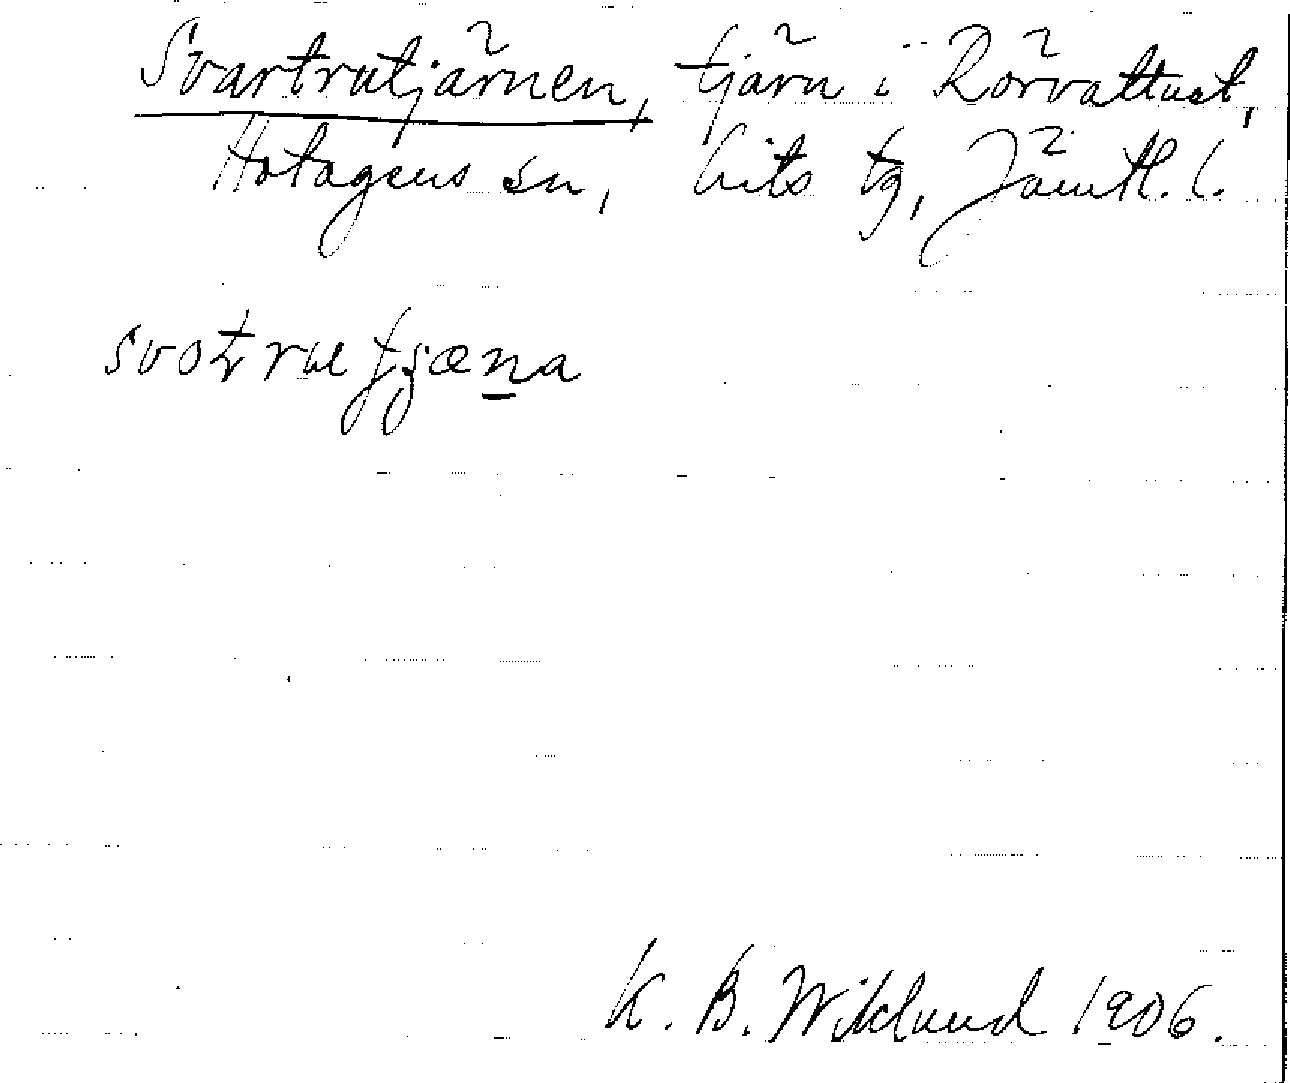 Svartrutjärnen, tjärn i Rörvattnet,
Hotagens sn, Lits tg, Jämtl. l.
svoṭrutjæna
K. B. Wiklund 1906.